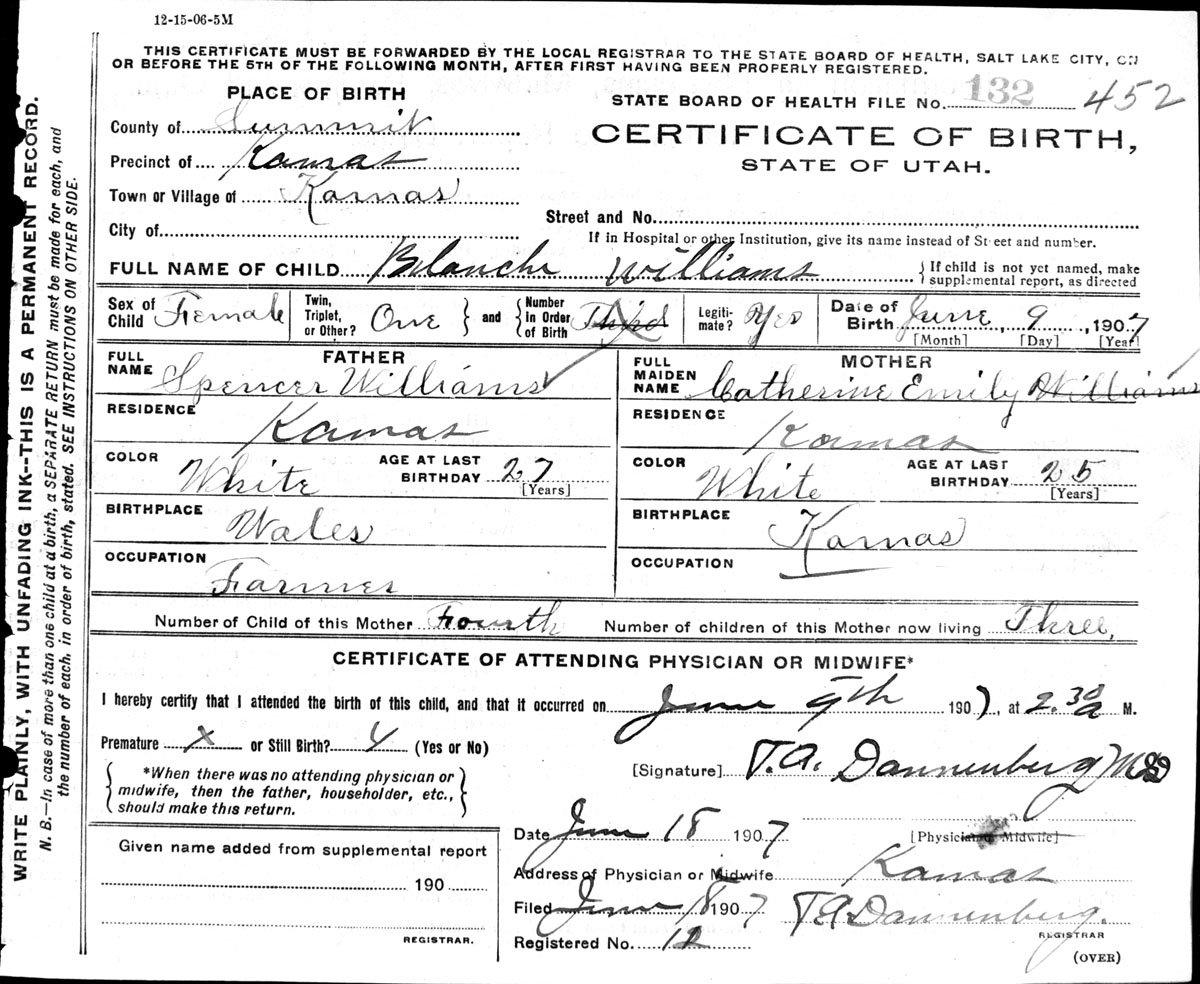 12-15-06-5M
THIS CERTIFICATE MUST BE FORWARDED BY THE LOCAL REGISTRAR TO THE STATE BOARD OF HEALTH, SALT LAKE CITY, ON
OR BEFORE THE 5TH OF THE FOLLOWING MONTH, AFTER FIRST HAVING BEEN PROPERLY REGISTERED.
WRITE PLAINLY, WITH UNFADING INK--THIS IS A PERMANENT RECORD.
N. B.—In case of more than one child at a birth, a SEPARATE RETURN must be made for each, and
the number of each, in order of birth, stated. SEE INSTRUCTIONS ON OTHER SIDE.
PLACE OF BIRTH
County of Summit
Precinct of Kamas
Town or Village of Kamas
City of
STATE BOARD OF HEALTH FILE No. 132 452
CERTIFICATE OF BIRTH,
STATE OF UTAH.
Street and No.
If in Hospital or other Institution, give its name instead of Street and number.
FULL NAME OF CHILD Blanche Williams
If child is not yet named, make
supplemental report, as directed
Sex of Child Female
Twin, Triplet, or Other? One and Number in Order of Birth Third
Legiti-mate? Yes
Date of Birth June 9, 1907
[Month] [Day] [Year]
FATHER
FULL NAME Spencer Williams
RESIDENCE Kamas
COLOR White AGE AT LAST BIRTHDAY 27
[Years]
BIRTHPLACE Wales
OCCUPATION Farmer
MOTHER
FULL MAIDEN NAME Catherine Emily Williams
RESIDENCE Kamas
COLOR White AGE AT LAST BIRTHDAY 25
[Years]
BIRTHPLACE Kamas
OCCUPATION
Number of Child of this Mother Fourth Number of children of this Mother now living Three,
CERTIFICATE OF ATTENDING PHYSICIAN OR MIDWIFE*
I hereby certify that I attended the birth of this child, and that it occurred on June 9th 1907, at 2.30 a M.
Premature x or Still Birth? (Yes or No)
*When there was no attending physician or
midwife, then the father, householder, etc.,
should make this return.
[Signature] T. A. Dannenberg MD
[Physician or Midwife]
Date June 18 1907
Address of Physician or Midwife Kamas
Filed June 18 1907 T A Dannenberg.
REGISTRAR
Registered No. 12
(OVER)
Given name added from supplemental report
190
REGISTRAR.